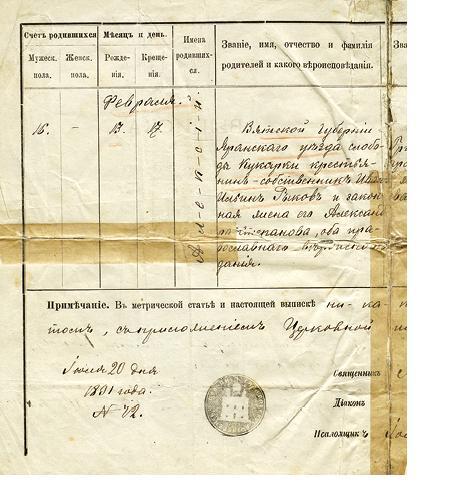 Счетъ родившихся
Мѣсяцъ и день.
Имена родившихся.
Званіе, имя, отчество и фамилія
родителей и какого вѣроисповѣданія.
Зва
Мужеск. пола.
Женск. пола.
Рожденія,
Крещенія.
Февраля.
16.
–
13
17.
Алексій
Вятской губерніи
Яранскаго уѣзда слобо
ды Кукарки крестья
нинъ-собственникъ
Ильинъ Рыковъ и закон
ная жена его Алексан
Степанова, оба пра
вославнаго
данія.
Примѣчаніе. Въ метрической статьѣ и настоящей выпискѣ
Церковной
Іюля 20 дня
1891 года.
N 72.
Священникъ
Діаконъ
Псаломщикъ